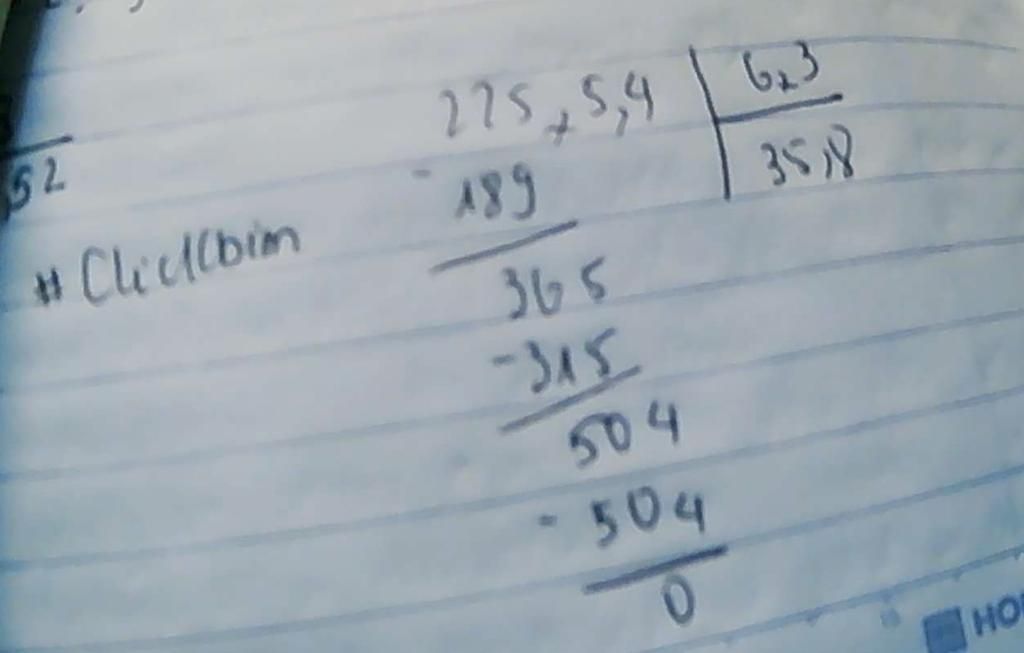 225,5,4 6,3
- 189 35,8
52
# Clidcbim
365
-315
504
- 504
0
HO